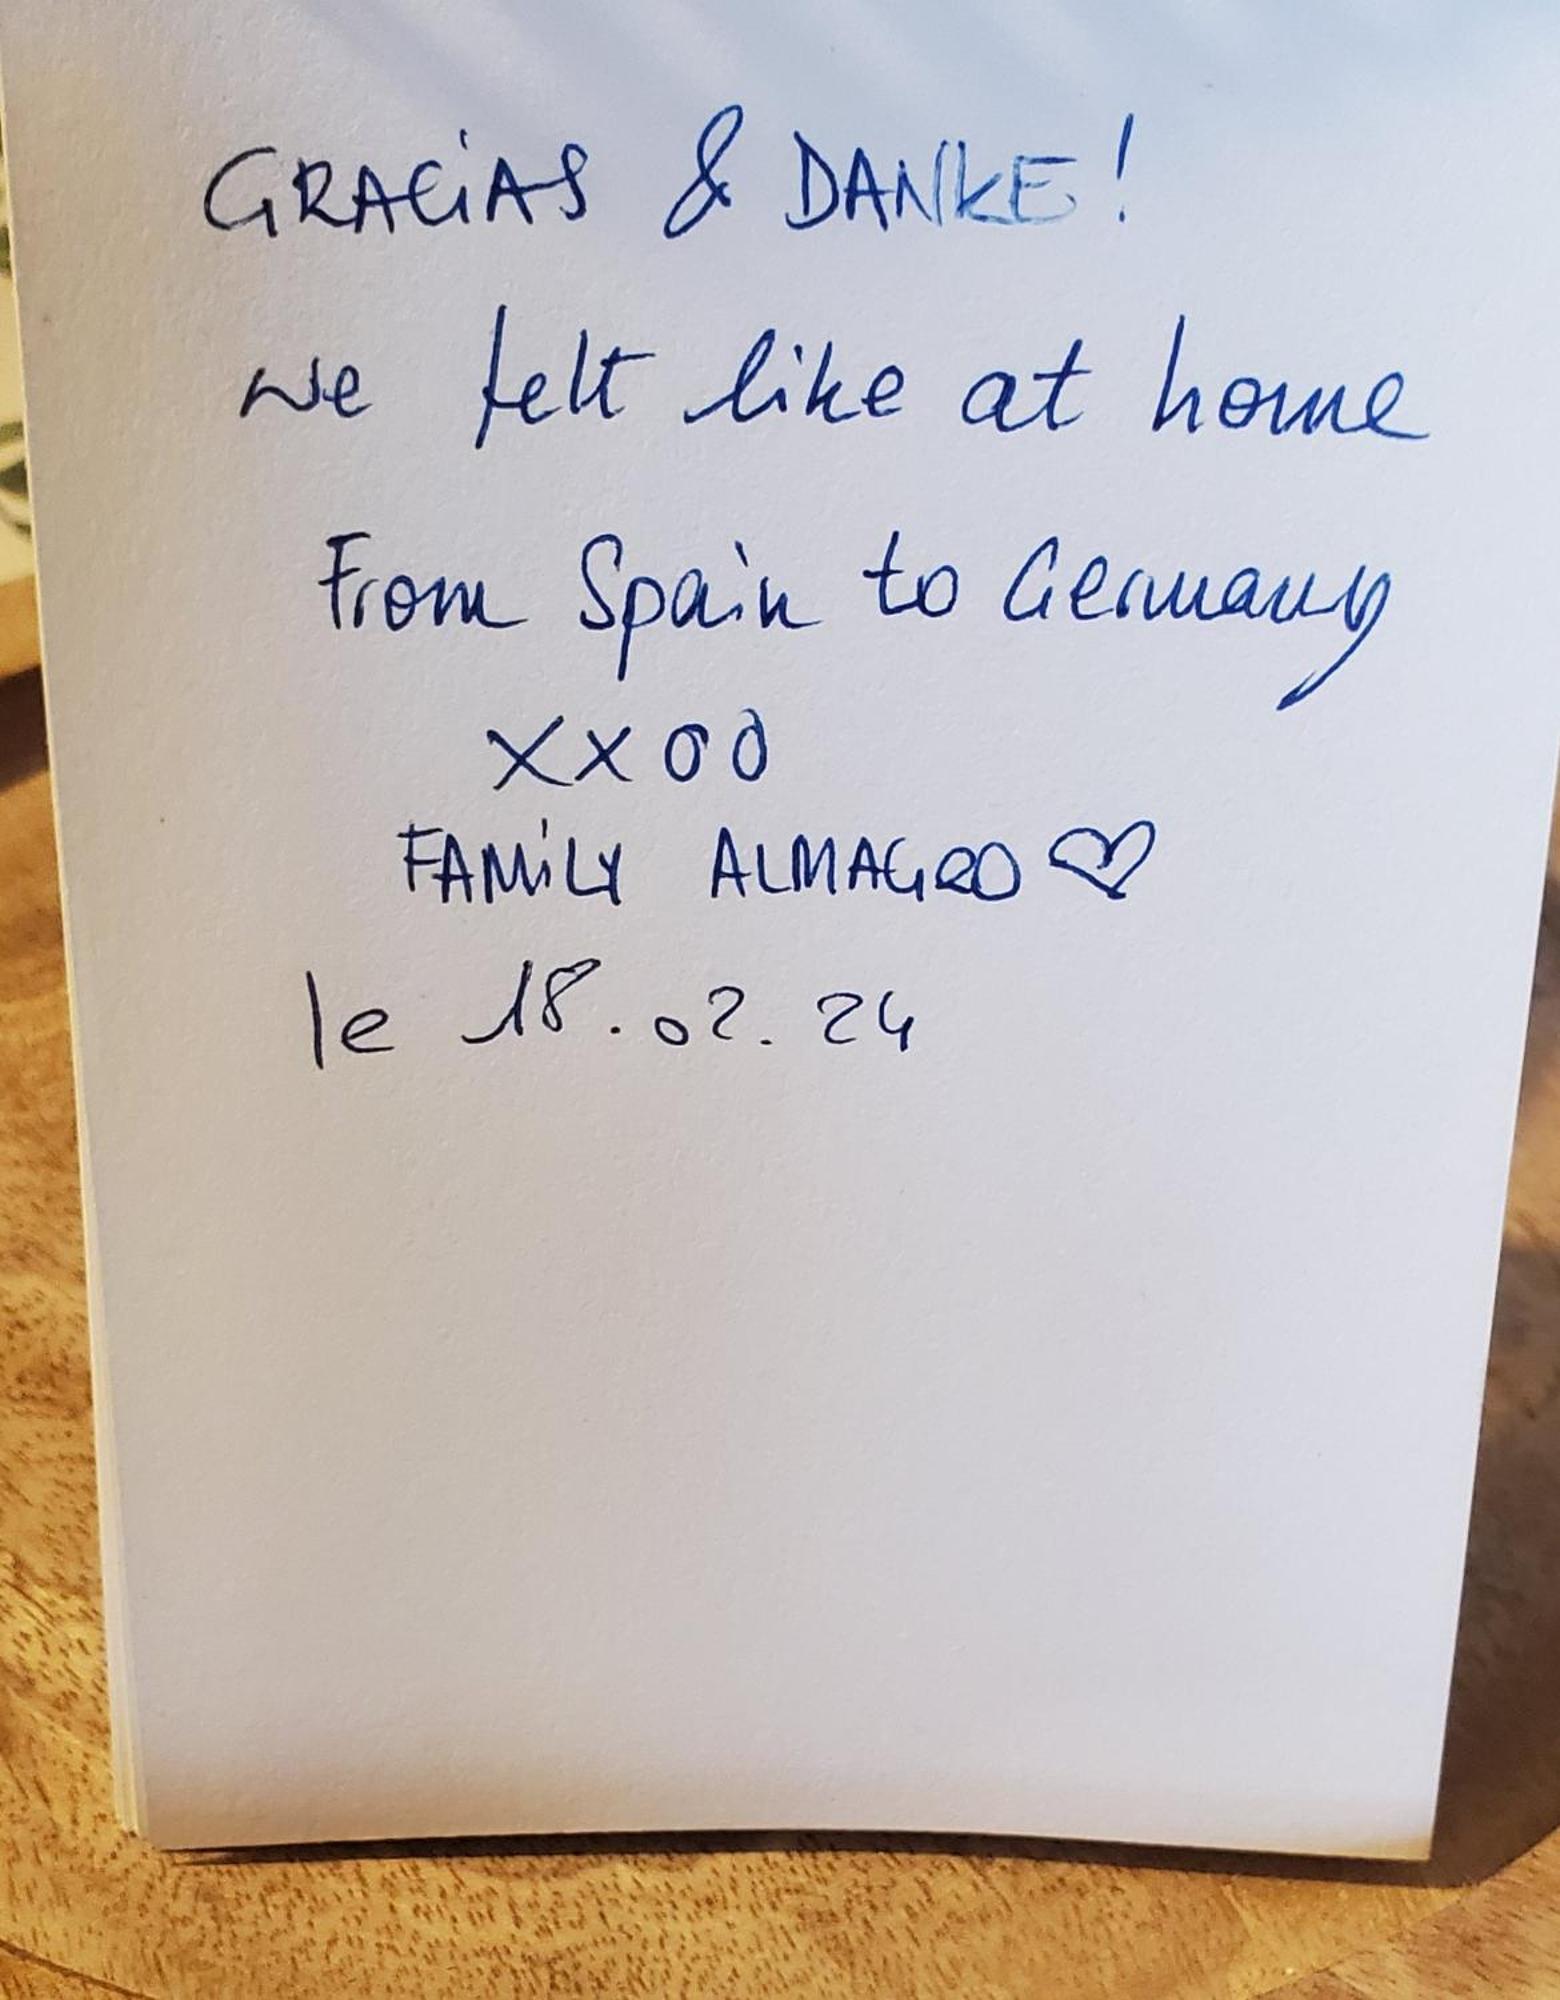 GRACiAS & DANKE!
we felt like at home
From Spain to Germany
xxoo
FAMiLY ALMAGRO ♡
le 18.02.24